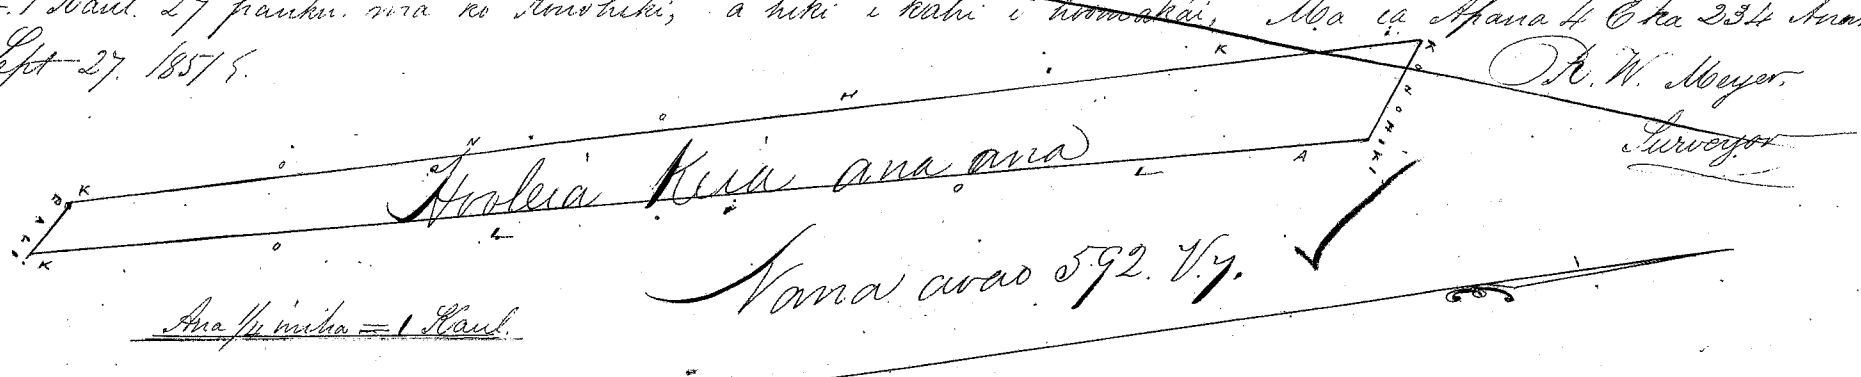 1 Kaul. 27 pauku. ma ko Konohiki, a hiki i kahi i hoomakai, Ma ia Apana 4 Eka 234 Ana.
Sept 27. 1851
R. W. Meyer.
Surveyor
KONOHIKI
Hooleia Keia ana ana
Nana avao 592. V.7.
Ana 1/4 iniha = 1 Kaul.